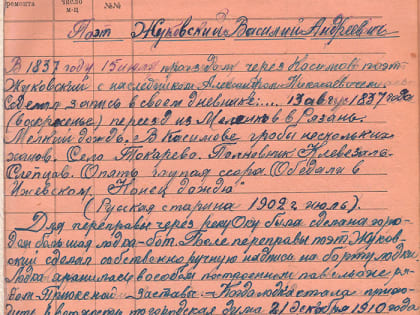 ремонта
число
м-ц
№№
Поэт Жуковский Василий Андреевич
В 1837 году 15 июля проездом через Касимов поэт
Жуковский с наследником Александром Николаевичем
сделал запись в своем дневнике:.... 13 август 1837 года
(воскресенье) переезд из Меленков в Рязань.
Мелкий дождь. В Касимове гробы нескольких
ханов. Село Токарево. Полковник Клевезаль.
Слепцов. Опять глупая ссора. Обедали в
Ижевском. Конец дождя"
(Русская старина 1902 г июль).
Для переправы через реку Оку была сделана
большая лодка-бот. После переправы поэт Жуков-
ский сделал собственноручную надпись на борту лодки.
Лодка хранилась в особом построенном павильоне
Приокской заставы. Когда лодка стала
в ветхость городская дума 21 декабря 1910 года